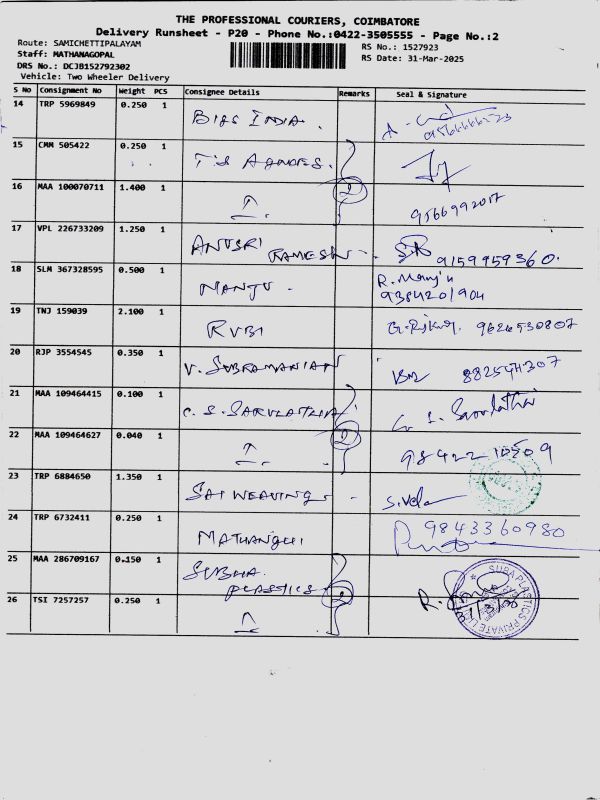 THE PROFESSIONAL COURIERS, COIMBATORE
Delivery Runsheet - P20 - Phone No.:0422-3505555 - Page No.:2
Route: SAMICHETTIPALAYAM
Staff: MATHANAGOPAL
DRS No.: DCJB152792302
Vehicle: Two Wheeler Delivery
RS No.: 1527923
RS Date: 31-Mar-2025
S No Consignment No Weight PCS Consignee Details Remarks Seal & Signature
14 TRP 5969849 0.250 1 BIGS INDIA.
15 CMM 505422 0.250 1
16 MAA 100070711 1.400 1 2 9566992017
17 VPL 226733209 1.250 1 ANUSRI RAMESH 9159959360.
18 SLM 367328595 0.500 1 MANJU. R. Manju
9384201904
19 TNJ 159039 2.100 1 RUBI 9626530807
20 RJP 3554545 0.350 1 V. SUBRAMANIAN
21 MAA 109464415 0.100 1 C. S. 
22 MAA 109464627 0.040 1 2
23 TRP 6884650 1.350 1 SAI WEAVING S.Vel
24 TRP 6732411 0.250 1 MATHANGHI 9843360980
25 MAA 286709167 0.150 1 SUBHA PLASTICS 2
26 TSI 7257257 0.250 1